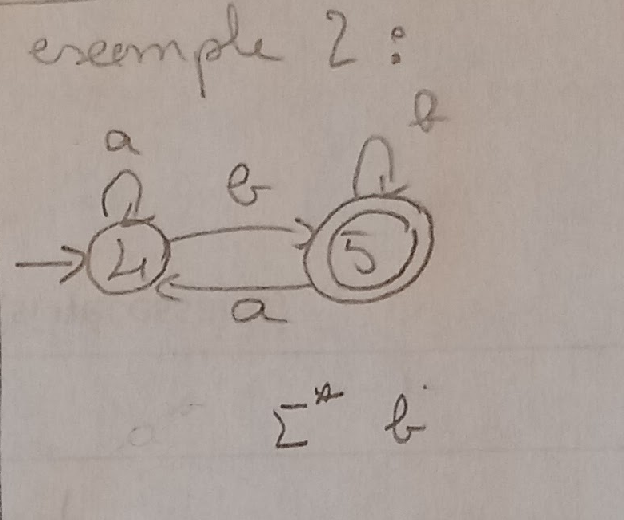 exemple 2 :
a b b
4 5
a
Σ* b